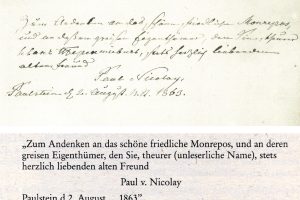 Zum Andenken an das schöne friedliche Monrepos,
und an dessen greisen Eigenthümer, den
stets herzlich liebenden
alten Freund
Paul Nicolay.
Paulstein d. 2. August 1863.
„Zum Andenken an das schöne friedliche Monrepos, und an deren
greisen Eigenthümer, den Sie, theurer (unleserliche Name), stets
herzlich liebenden alten Freund
Paul v. Nicolay
Paulstein d 2. August 1863"